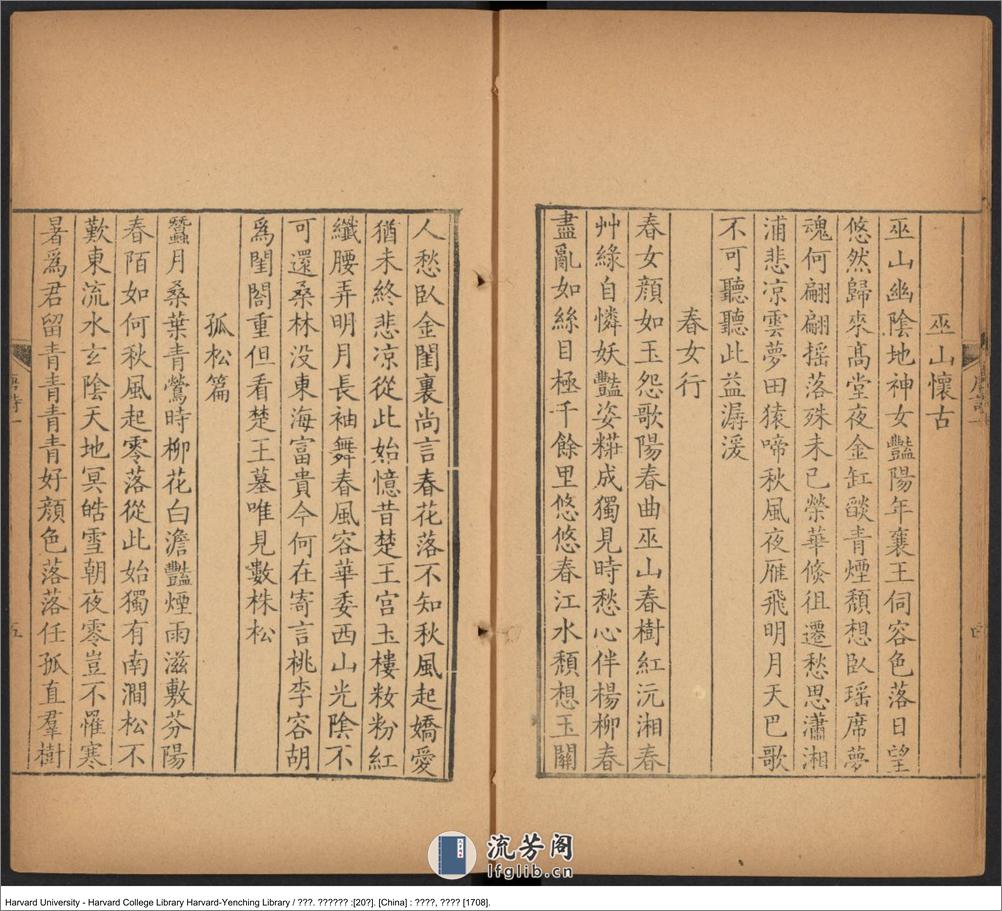 巫山懷古
巫山幽陰地神女豔陽年襄王伺容色落日望
悠然歸來高堂夜金缸燄青煙頹想臥瑤席夢
魂何翩翩搖落殊未已榮華倏徂遷愁思瀟湘
浦悲涼雲夢田猿啼秋風夜雁飛明月天巴歌
不可聽聽此益潺湲
春女行
春女顏如玉怨歌陽春曲巫山春樹紅沅湘春
艸綠自憐妖豔姿糚成獨見時愁心伴楊柳春
盡亂如絲目極千餘里悠悠春江水頹想玉關
人愁臥金閨裏尚言春花落不知秋風起嬌愛
猶未終悲凉從此始憶昔楚王宮玉樓妝粉紅
纖腰弄明月長袖舞春風容華委西山光陰不
可還桑林没東海富貴今何在寄言桃李容胡
爲閨閤重但看楚王墓唯見數株松
孤松篇
蠶月桑葉青鶯時柳花白澹豔煙雨滋敷芬陽
春陌如何秋風起零落從此始獨有南澗松不
歎東流水玄陰天地冥皓雪朝夜零豈不罹寒
暑爲君留青青青青好顏色落落任孤直羣樹
五
流芳阁
lfglib.cn
Harvard University - Harvard College Library Harvard-Yenching Library / ???. ?????? :[20?]. [China] : ????, ???? [1708].